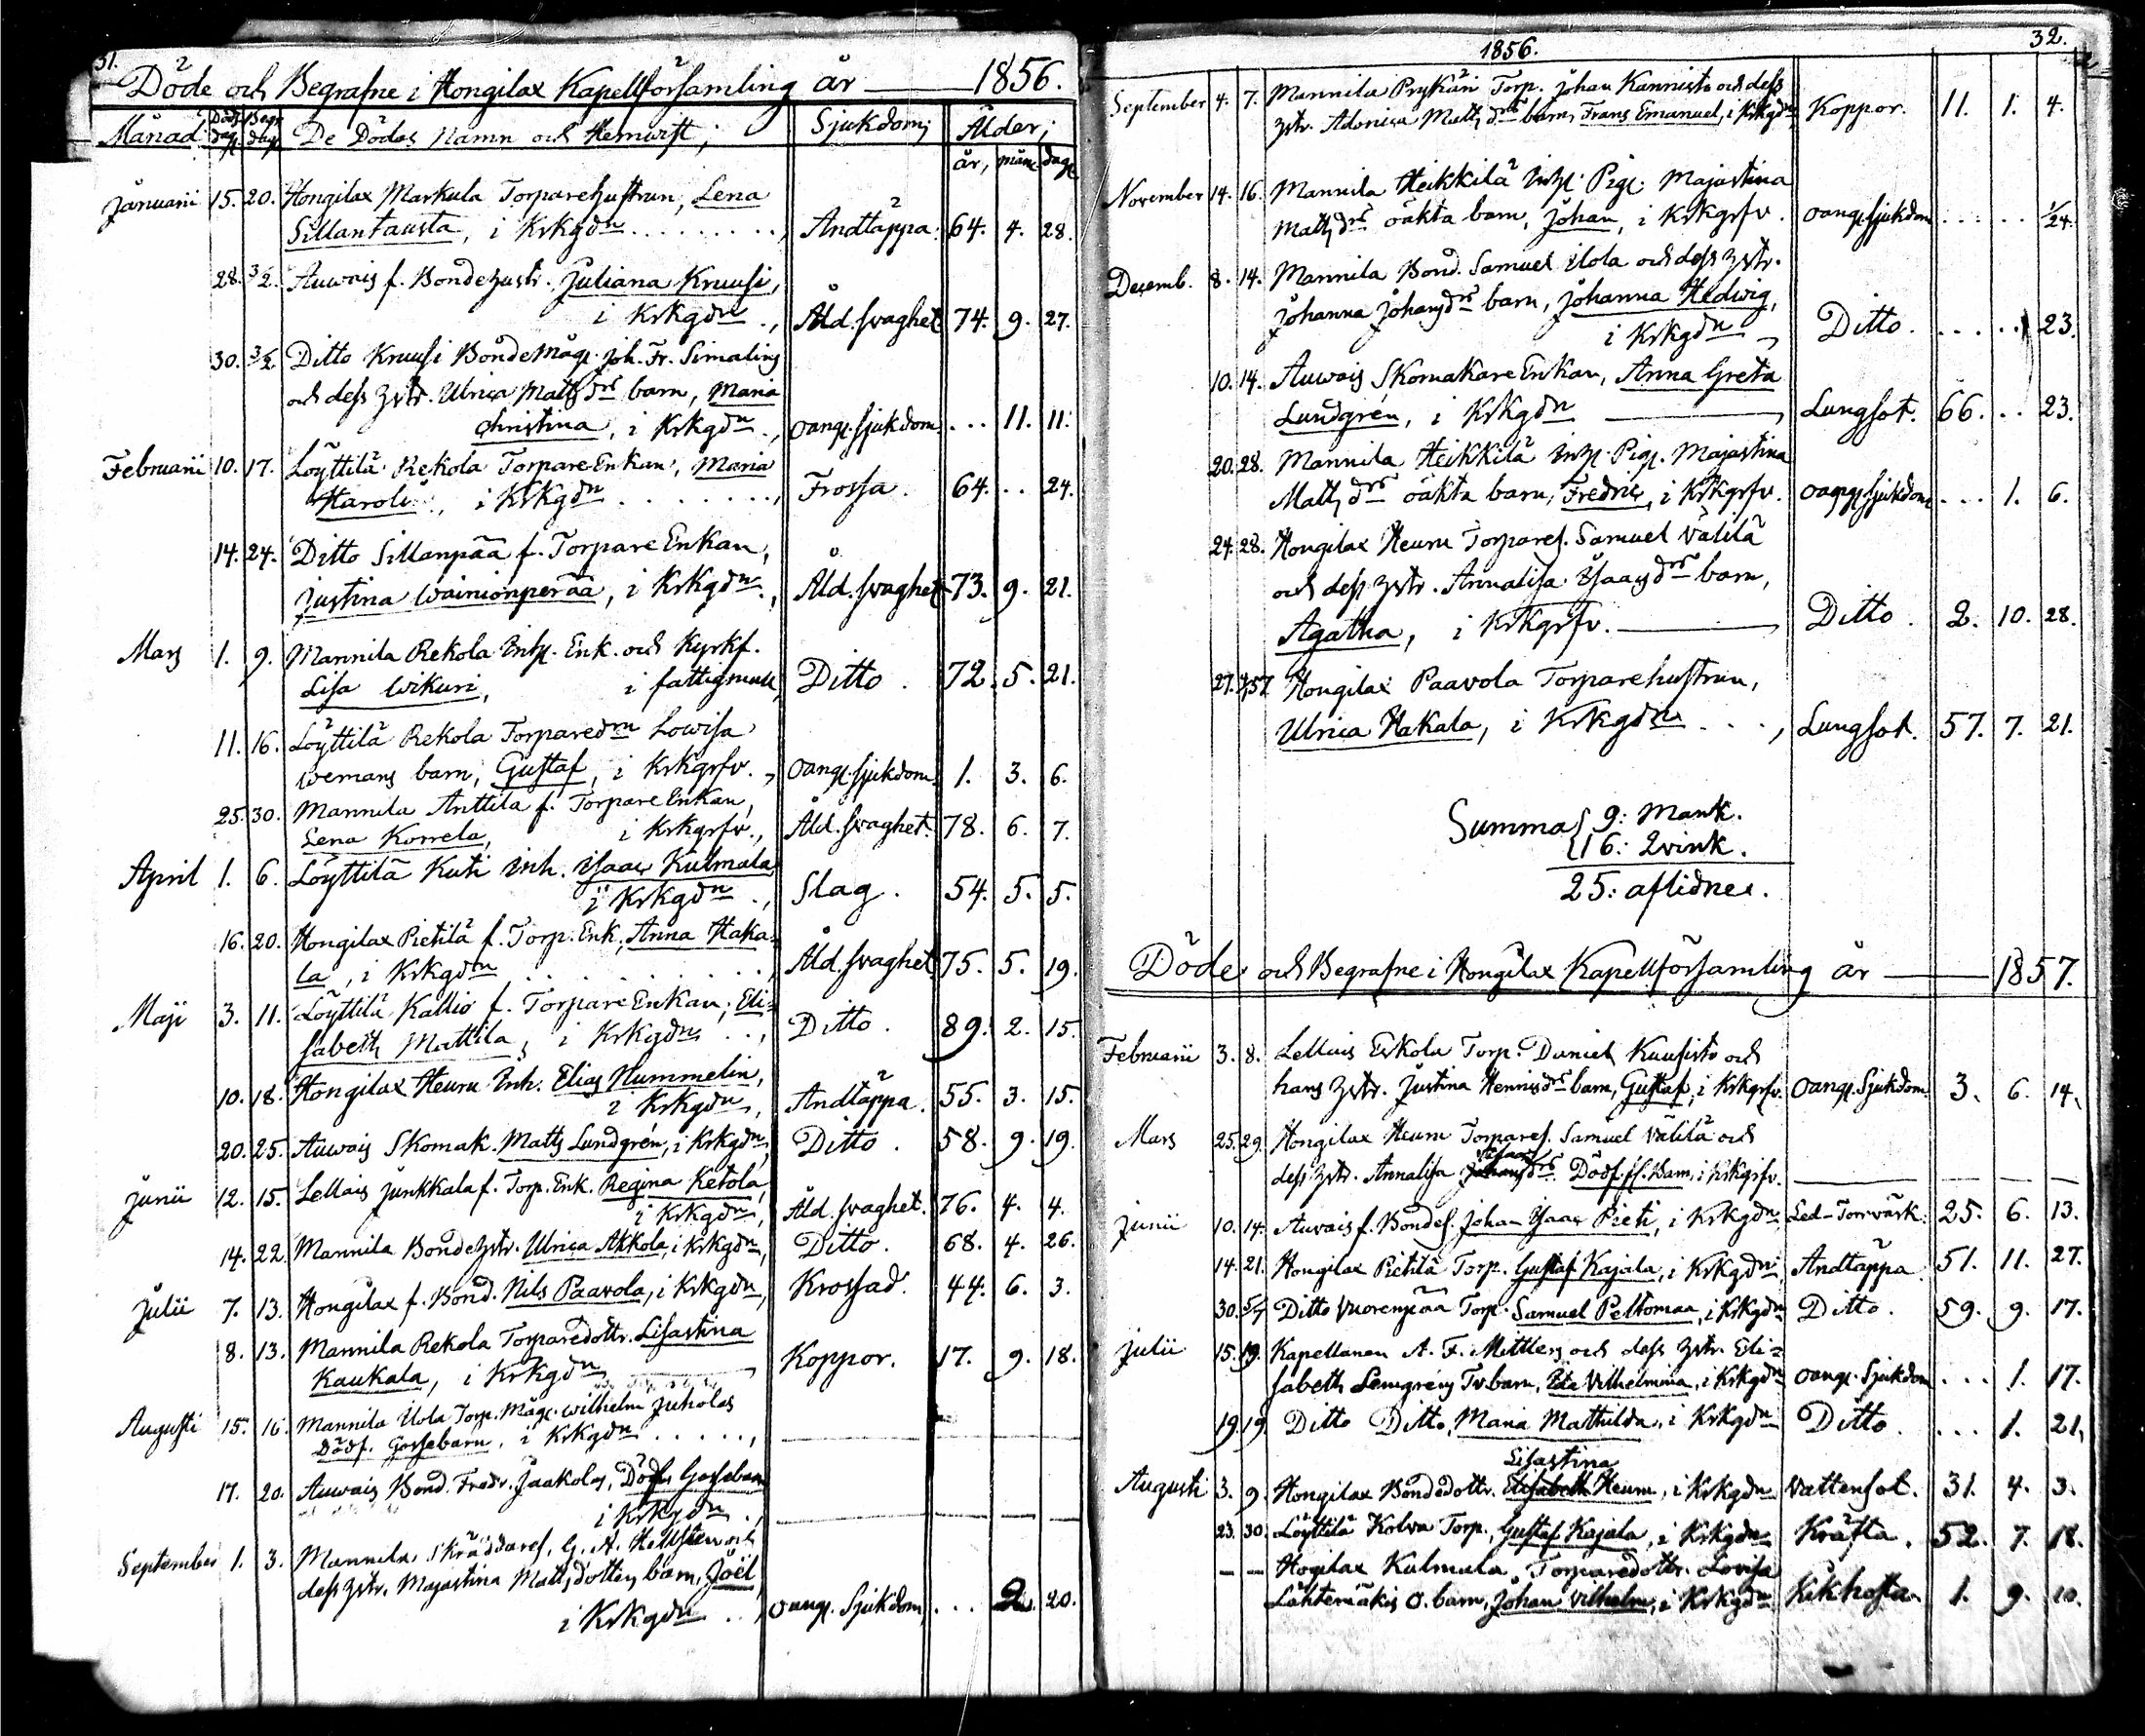 31.
Döde och Begrafne i Hongilax Kapellförsamling år — 1856.
Månad Död. dag. Begr. dag. De Dödas Namn och Hemwist; Sjukdom; Ålder;
år, mån. dag.
Januarii 15. 20. Hongilax Markula Torparehustrun, Lena
Sillantausta, i Krkgdn ........., Andtäppa. 64. 4. 28.
28. 3/2. Auwais f. Bondehustr. Juliana Kruusi,
i Krkgdn ., Åld. svaghet 74. 9. 27.
30. 3/2. Ditto Kruusi Bondemåg. Joh. Fr. Simalins
och dess hstr. Ulrica Matsdrs barn, Maria
Christina, i Krkgdn ., oang. sjukdom. ... 11. 11.
Februarii 10. 17. Löyttilä Rekola Torpare Enkan, Maria
i Krkgdn ......., Frossa. 64. .. 24.
14. 24. Ditto Sillanpää f. Torpare Enkan,
Justina Wainionperää, i Krkgdn., Åld. svaghet 73. 9. 21.
Mars 1. 9. Mannila Rekola Inh. Enk. och Kyrkf.
Lisa Wikuri, i fattigmull, Ditto. 72. 5. 21.
11. 16. Löyttilä Rekola Torparedrn Lowisa
Wemans barn, Gustaf, i Krkgrfv., oang. sjukdom. 1. 3. 6.
25. 30. Mannila Anttila f. Torpare Enkan,
Lena Korrela, i Krkgrfv., Åld. svaghet. 78. 6. 7.
April 1. 6. Löyttilä Kuti Inh. Isaac Kulmala
i Krkgdn ., Slag. 54. 5. 5.
16. 20. Hongilax Pietilä f. Torp. Enk. Anna Haka=
la, i Krkgdn .........., Åld. svaghet 75. 5. 19.
Maji 3. 11. Löyttilä Kallio f. Torpare Enkan, Eli=
sabeth Mattila, i Krkgdn .., Ditto. 89. 2. 15.
10. 18. Hongilax Heuru Inh. Elias Nummelin,
i Krkgdn, Andtäppa. 55. 3. 15.
20. 25. Auwais Skomak. Matts Lundgrén, i Krkgdn, Ditto. 58. 9. 19.
Junii 12. 15. Lellais Junkkala f. Torp. Enk. Regina Ketola,
i Krkgdn, Åld. svaghet. 76. 4. 4.
14. 22. Mannila Bondehstr. Ulrica Akkola, i Krkgdn, Ditto. 68. 4. 26.
Julii 7. 13. Hongilax f. Bond. Nils Paavola, i Krkgdn, Krossad. 44. 6. 3.
8. 13. Mannila Rekola Torparedottr. Lisastina
Kaukala, i Krkgdn —, Koppor. 17. 9. 18.
Augusti 15. 16. Mannila Ilola Torp. Måg. Wilhelm Juholas
Dödf. Gossebarn, i Krkgdn .....,
17. 20. Auwais Bond. Fredr. Jaakolas, Dödf. Gossebarn
i Krkgdn .,
September 1. 3. Mannila, Skräddares. G. A. Hellsten och
dess hstr. Majastina Mattsdotters barn, Joël,
i Krkgdn .., oang. Sjukdom, ... 2. 20.
1856. 32.
September 4. 7. Mannila Prykäri Torp. Johan Kannisto och dess
hstr. Adonica Matts drs barn, Frans Emanuel, i Krkgdn, Koppor. 11. 1. 4.
November 14. 16. Mannila Heikkilä Inh. Pig. Majastina
Matts drs oäkta barn, Johan, i Krkgrfv. oang. sjukdom ..... 1/24.
Decemb. 8. 14. Mannila Bond. Samuel Ilola och dess hstr.
Johanna Johansdrs barn, Johanna Hedwig,
i Krkgdn, Ditto. ..... 23.
10. 14. Auwais Skomakare Enkan, Anna Greta
Lundgrén, i Krkgdn —, Lungsot. 66. .. 23.
20. 28. Mannila Heikkilä Inh. Pig. Majastina
Matts drs oäkta barn, Fredric, i Krkgrfv. oang. sjukdom ... 1. 6.
24. 28. Hongilax Heuru Torpares. Samuel Välilä
och dess hstr. Annalisa Isaacs drs barn,
Agatha, i Krkgrfv. —, Ditto. 2. 10. 28.
27. Hongilax Paavola Torparehustrun,
Ulrica Hakala, i Krkgdn ..., Lungsot. 57. 7. 21.
Summa { 9: Mank.
16: Qvink.
25: aflidne.
Döde och Begrafne i Hongilax Kapellförsamling år — 1857.
Februarii 3. 8. Lellais Eskola Torp. Daniel Kuusisto och
hans hstr. Justina Henricsdrs barn, Gustaf, i Krkgrfv. oang. Sjukdom. 3. 6. 14.
Mars 25. 29. Hongilax Heuru Torpares. Samuel Välilä och
dess hstr. Annalisa Isaacs drs. Dödf. fl. Barn, i Krkgrfv.
Junii 10. 14. Auwais f. Bondes. Johan Isaac Pieti, i Krkgdn Led-Torrvärk. 25. 6. 13.
14. 21. Hongilax Pietilä Torp. Gustaf Kajala, i Krkgdn, Andtäppa 51. 11. 27.
30. 5/7 Ditto Vuorenpää Torp. Samuel Peltomaa, i Krkgdn Ditto. 59. 9. 17.
Julii 15. 19. Kapellanen A. F. Mittlers och dess hstr. Eli=
sabeth Lemgréns Tv. barn, Ida Vilhelmina, i Krkgdn oang. Sjukdom ... 1. 17.
19. 19. Ditto Ditto, Maria Mathilda, i Krkgdn Ditto. ... 1. 21.
Lisastina
Augusti 3. 9. Hongilax Bondedottr. Elisabeth Heuru, i Krkgdn Vattensot. 31. 4. 3.
23. 30. Löyttilä Kolva Torp. Gustaf Kajala, i Krkgdn Kräfta. 52. 7. 18.
— — Hogilax Kulmala Torparedottr. Lovisa
Lähtemäkis o. barn, Johan Vilhelm, i Krkgdn Kikhosta 1. 9. 10.